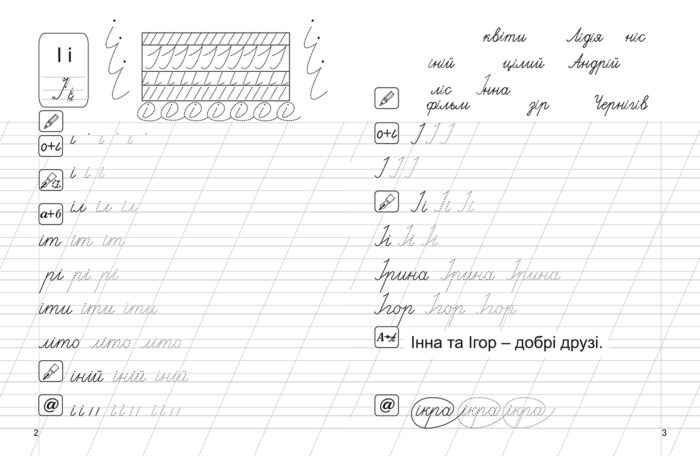 І і
І і
о+і
і і і і і
і і і
а+б
іл іл іл
іт іт іт
рі рі рі
іти іти іти
літо літо літо
іній іній іній
@
2
квіти Лідія ніс
іній цілий Андрій
ліс Інна
фільм зір Чернігів
о+і
І І І
І І І
Іі Іі Іі
Ірина Ірина Ірина
Ігор Ігор Ігор
Інна та Ігор – добрі друзі.
@ ікра ікра ікра
3